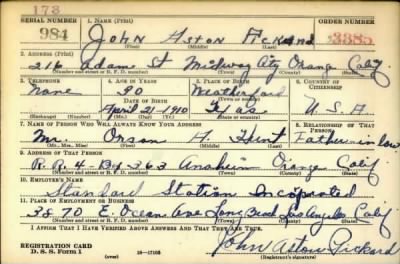 173
SERIAL NUMBER 1. NAME (Print) ORDER NUMBER
984 John Aston Pickard 3385
(First) (Middle) (Last)
2. ADDRESS (Print)
216 Adams St Midway City Orange Calif
(Number and street or R. F. D. number) (Town) (County) (State)
3. TELEPHONE 4. AGE IN YEARS 5. PLACE OF BIRTH 6. COUNTRY OF CITIZENSHIP
None 30 Weatherford
DATE OF BIRTH (Town or county)
April 21-1910 Texas U.S.A
(Exchange) (No.) (Mo.) (Day) (Yr.) (State or country)
7. NAME OF PERSON WHO WILL ALWAYS KNOW YOUR ADDRESS 8. RELATIONSHIP OF THAT PERSON
Mr. H. Hunt Father in law
(Mr., Mrs., Miss) (First) (Middle) (Last)
9. ADDRESS OF THAT PERSON
R.R. 4 - Bx 363 Anaheim Orange Calif.
(Number and street or R. F. D. number) (Town) (County) (State)
10. EMPLOYER'S NAME
Standard Station Incorporated
11. PLACE OF EMPLOYMENT OR BUSINESS
3870 E. Ocean Ave Long Beach Los Angeles Calif
(Number and street or R. F. D. number) (Town) (County) (State)
I AFFIRM THAT I HAVE VERIFIED ABOVE ANSWERS AND THAT THEY ARE TRUE.
REGISTRATION CARD
D. S. S. FORM 1 16-17105 John Aston Pickard
(Registrant's signature)